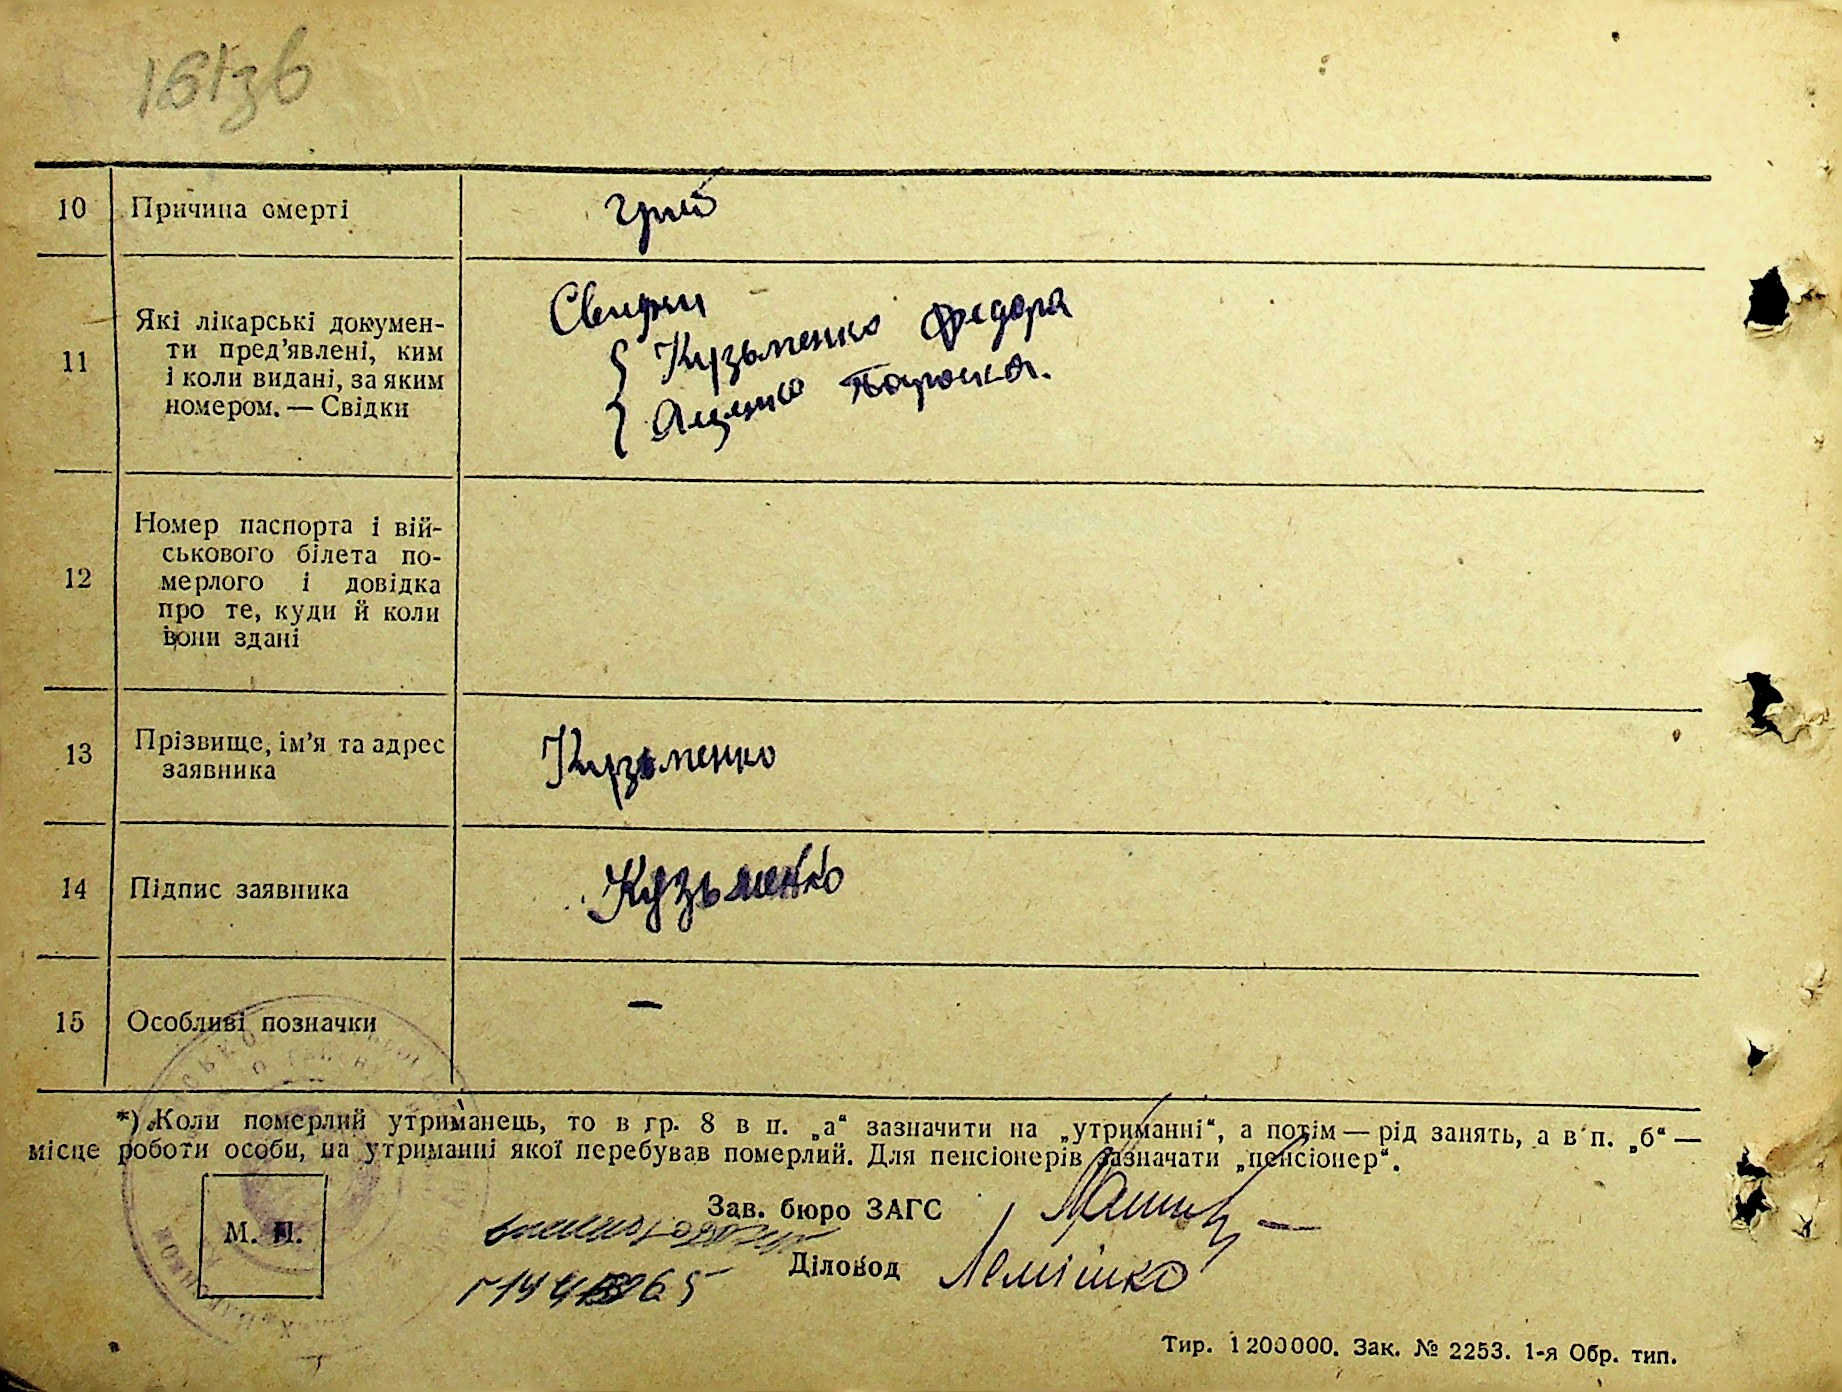 10 Причина смерті грип
11 Які лікарські докумен-
ти пред’явлені, ким
і коли видані, за яким
номером. — Свідки
Свидки
Кузьменко Федора
Параска.
12 Номер паспорта і вій-
ськового білета по-
мерлого і довідка
про те, куди й коли
вони здані
13 Прізвище, ім’я та адрес
заявника
Кузьменко
14 Підпис заявника Кузьменко
15 Особливі позначки —
*) Коли померлий утриманець, то в гр. 8 в п. „а“ зазначити на „утриманні“, а потім — рід занять, а в п. „б“ —
місце роботи особи, на утриманні якої перебував померлий. Для пенсіонерів зазначати „пенсіонер“.
М. П.
Зав. бюро ЗАГС
Діловод Лемішко
Тир. 1200000. Зак. № 2253. 1-я Обр. тип.